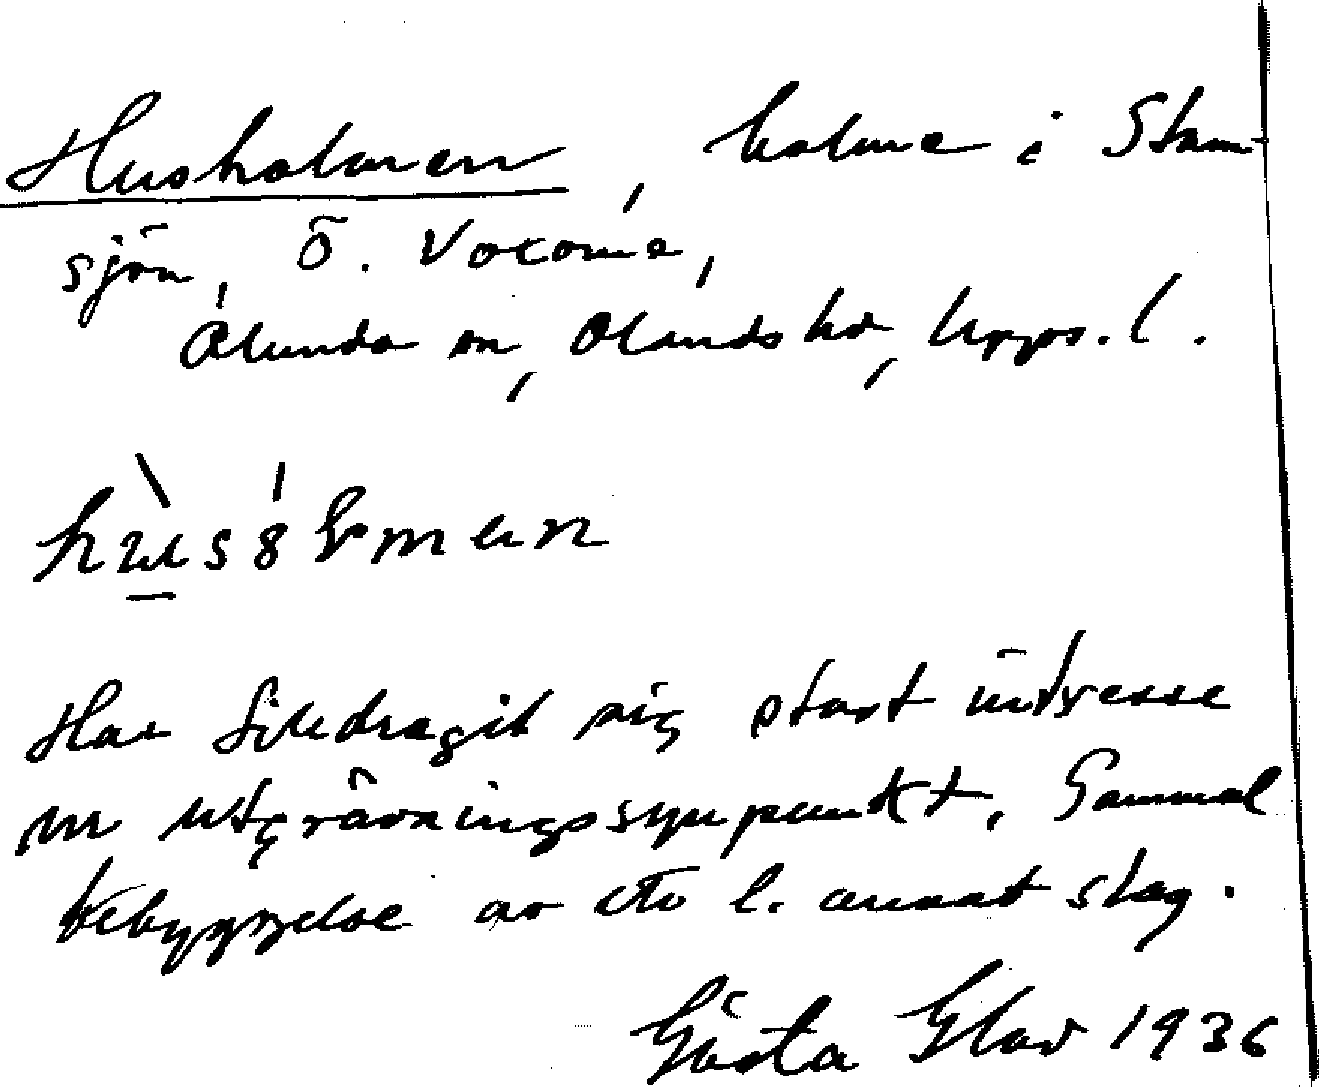 Husholmen, holme i Stam-
sjön, Ö. Voxome,
Alunda sn, Olands hd, Upps. l.
hùsólmen
Har tilldragit sig stort intresse
ur utgrävningssynpunkt. Gammal
bebyggelse av ett l. annat slag.
Gösta Glav 1936